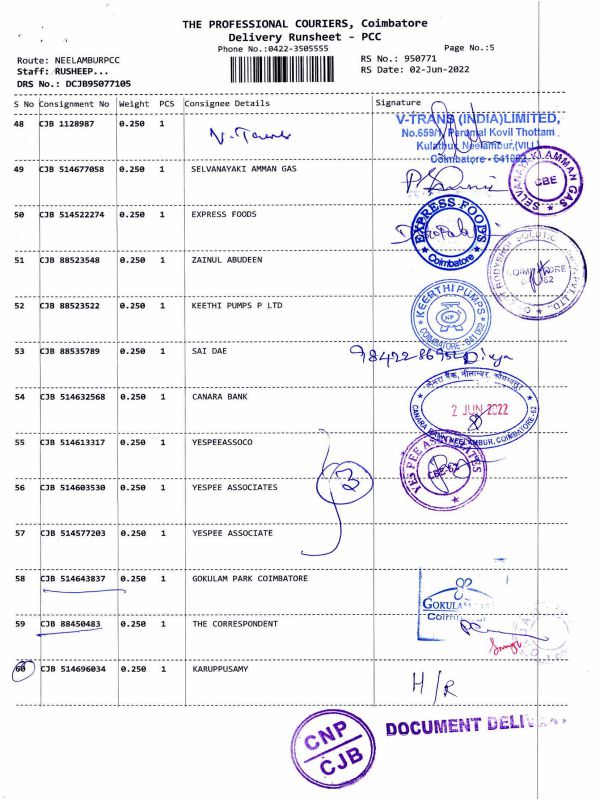 THE PROFESSIONAL COURIERS, Coimbatore
Delivery Runsheet - PCC
Phone No.:0422-3505555
Page No.:5
Route: NEELAMBURPCC
RS No.: 950771
Staff: RUSHEEP...
RS Date: 02-Jun-2022
DRS No.: DCJB95077105
S No Consignment No Weight PCS Consignee Details Signature
48 CJB 1128987 0.250 1 V. Trans
V-TRANS (INDIA) LIMITED,
No.659/1, Perumal Kovil Thottam
Kulathur, Neelambur,(VILL)
Coimbatore - 641062
49 CJB 514677058 0.250 1 SELVANAYAKI AMMAN GAS
SELVANAYAKI AMMAN GAS
CBE
50 CJB 514522274 0.250 1 EXPRESS FOODS
EXPRESS FOODS
Coimbatore
51 CJB 88523548 0.250 1 ZAINUL ABUDEEN
52 CJB 88523522 0.250 1 KEETHI PUMPS P LTD
KEERTHI PUMPS
COIMBATORE-641 062
53 CJB 88535789 0.250 1 SAI DAE
Divya
54 CJB 514632568 0.250 1 CANARA BANK
केनरा बैंक, नीलाम्बूर, कोयम्बत्तूर
2 JUN 2022
CANARA BANK NEELAMBUR, COIMBATORE-62
55 CJB 514613317 0.250 1 YESPEEASSOCO
YES PEE ASSOCIATES
CBE-62
56 CJB 514603530 0.250 1 YESPEE ASSOCIATES
3
57 CJB 514577203 0.250 1 YESPEE ASSOCIATE
58 CJB 514643837 0.250 1 GOKULAM PARK COIMBATORE
GOKULAM
59 CJB 88450483 0.250 1 THE CORRESPONDENT
60 CJB 514696034 0.250 1 KARUPPUSAMY
H/R
CNP
CJB
DOCUMENT